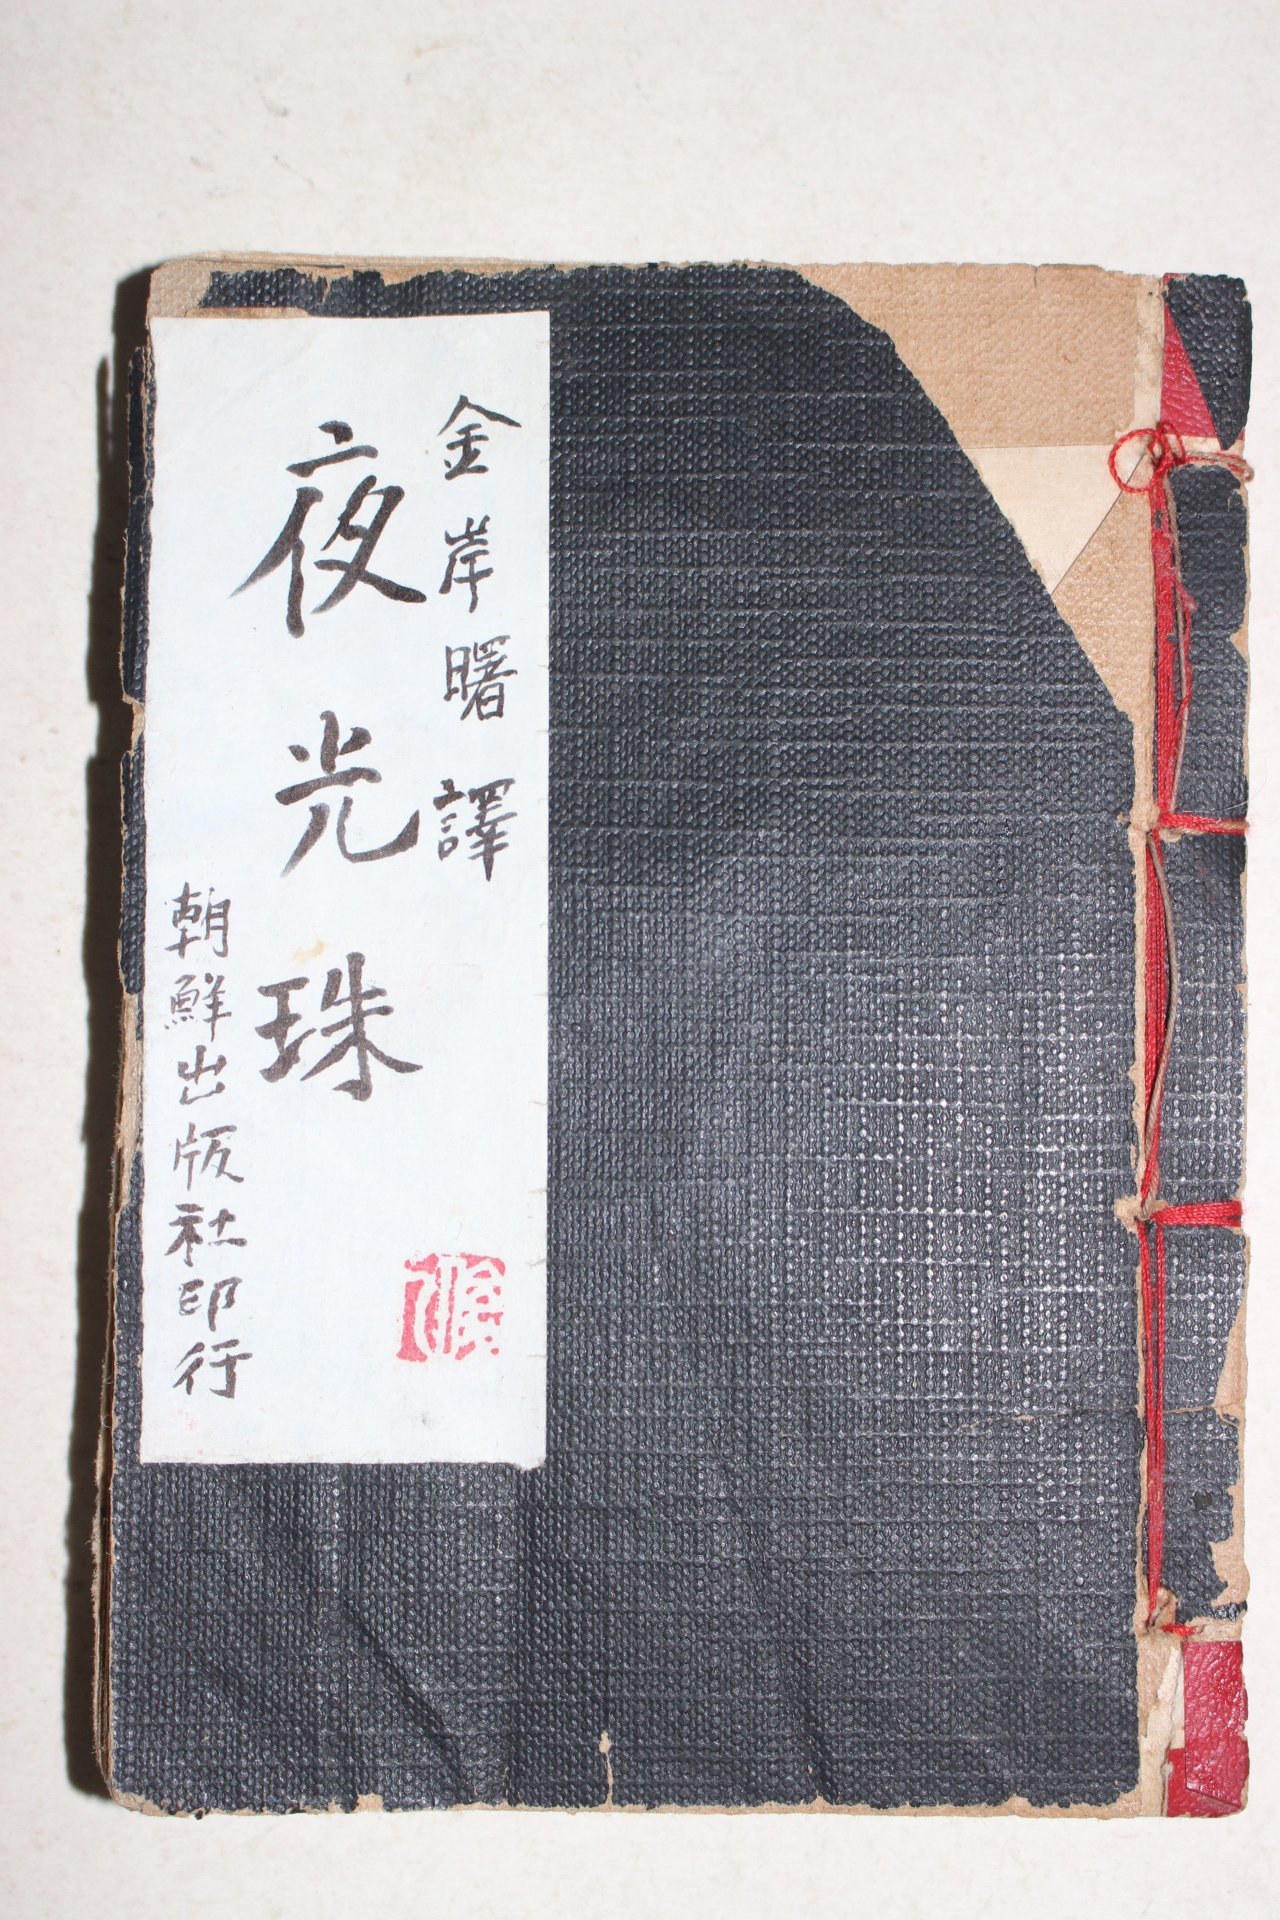 金岸曙譯
夜光珠
朝鮮出版社印行